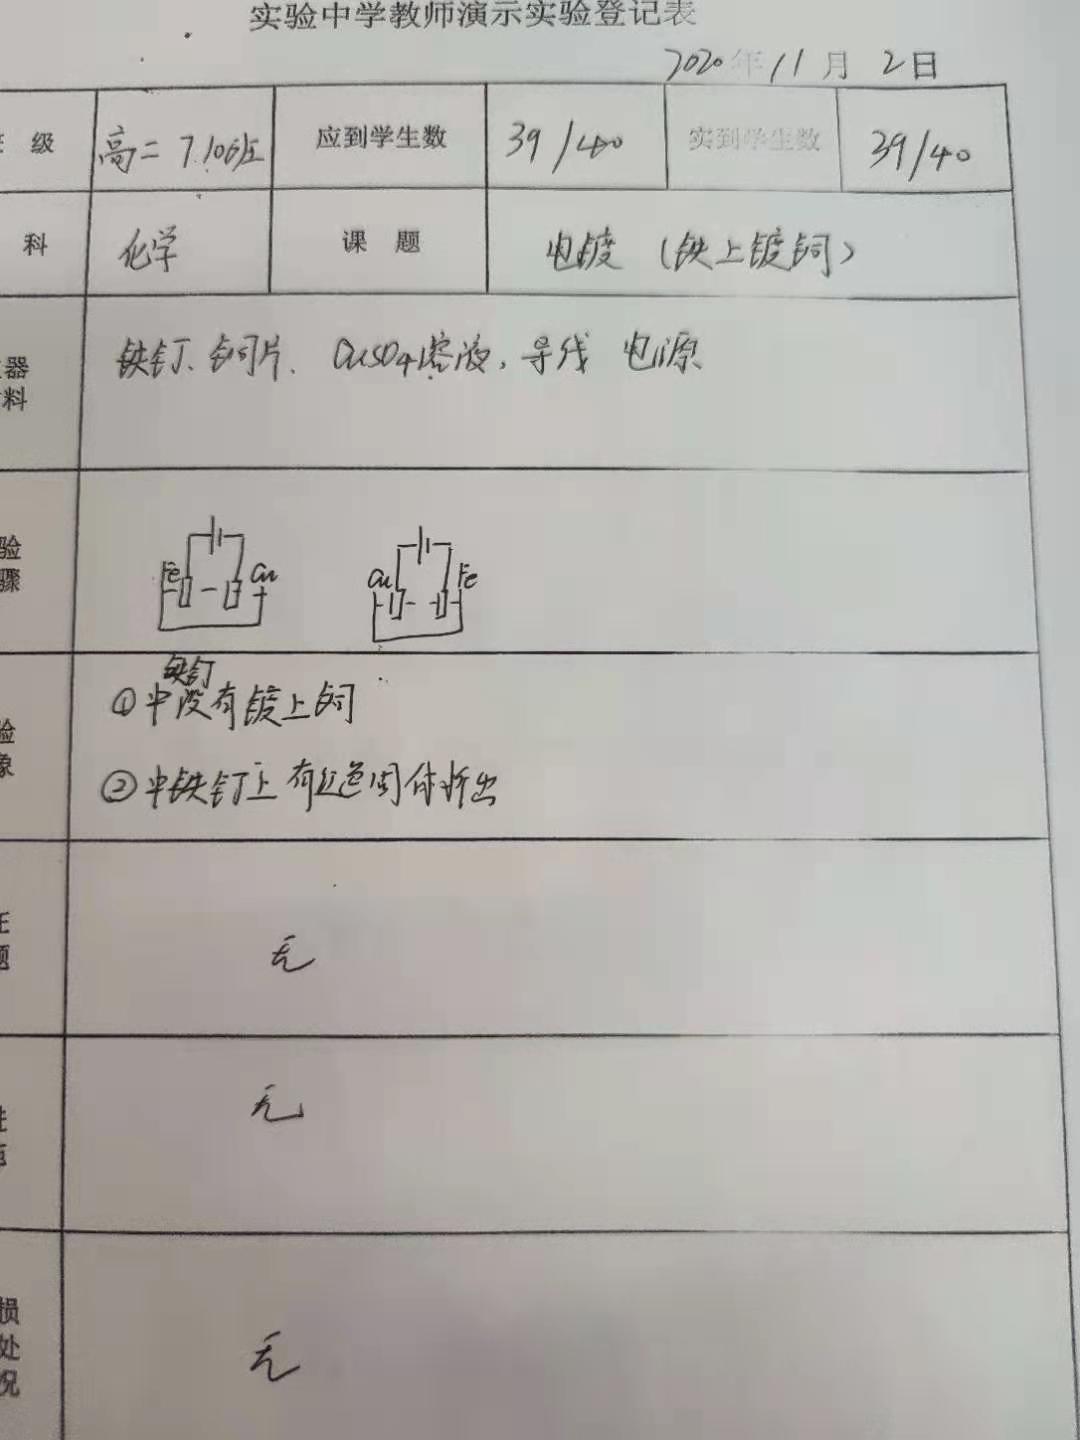 实验中学教师演示实验登记表
2020年11月2日
级 高二 7.10班 应到学生数 39/40 实到学生数 39/40
科 化学 课 题 电镀(铁上镀铜)
器 料 铁钉、铜片、CuSO4溶液,导线 电源
验 骤
Fe Cu Cu Fe
铁钉
①中没有镀上铜
②中铁钉上有红色固体析出
验 象
无
题
无
无
损
处
况